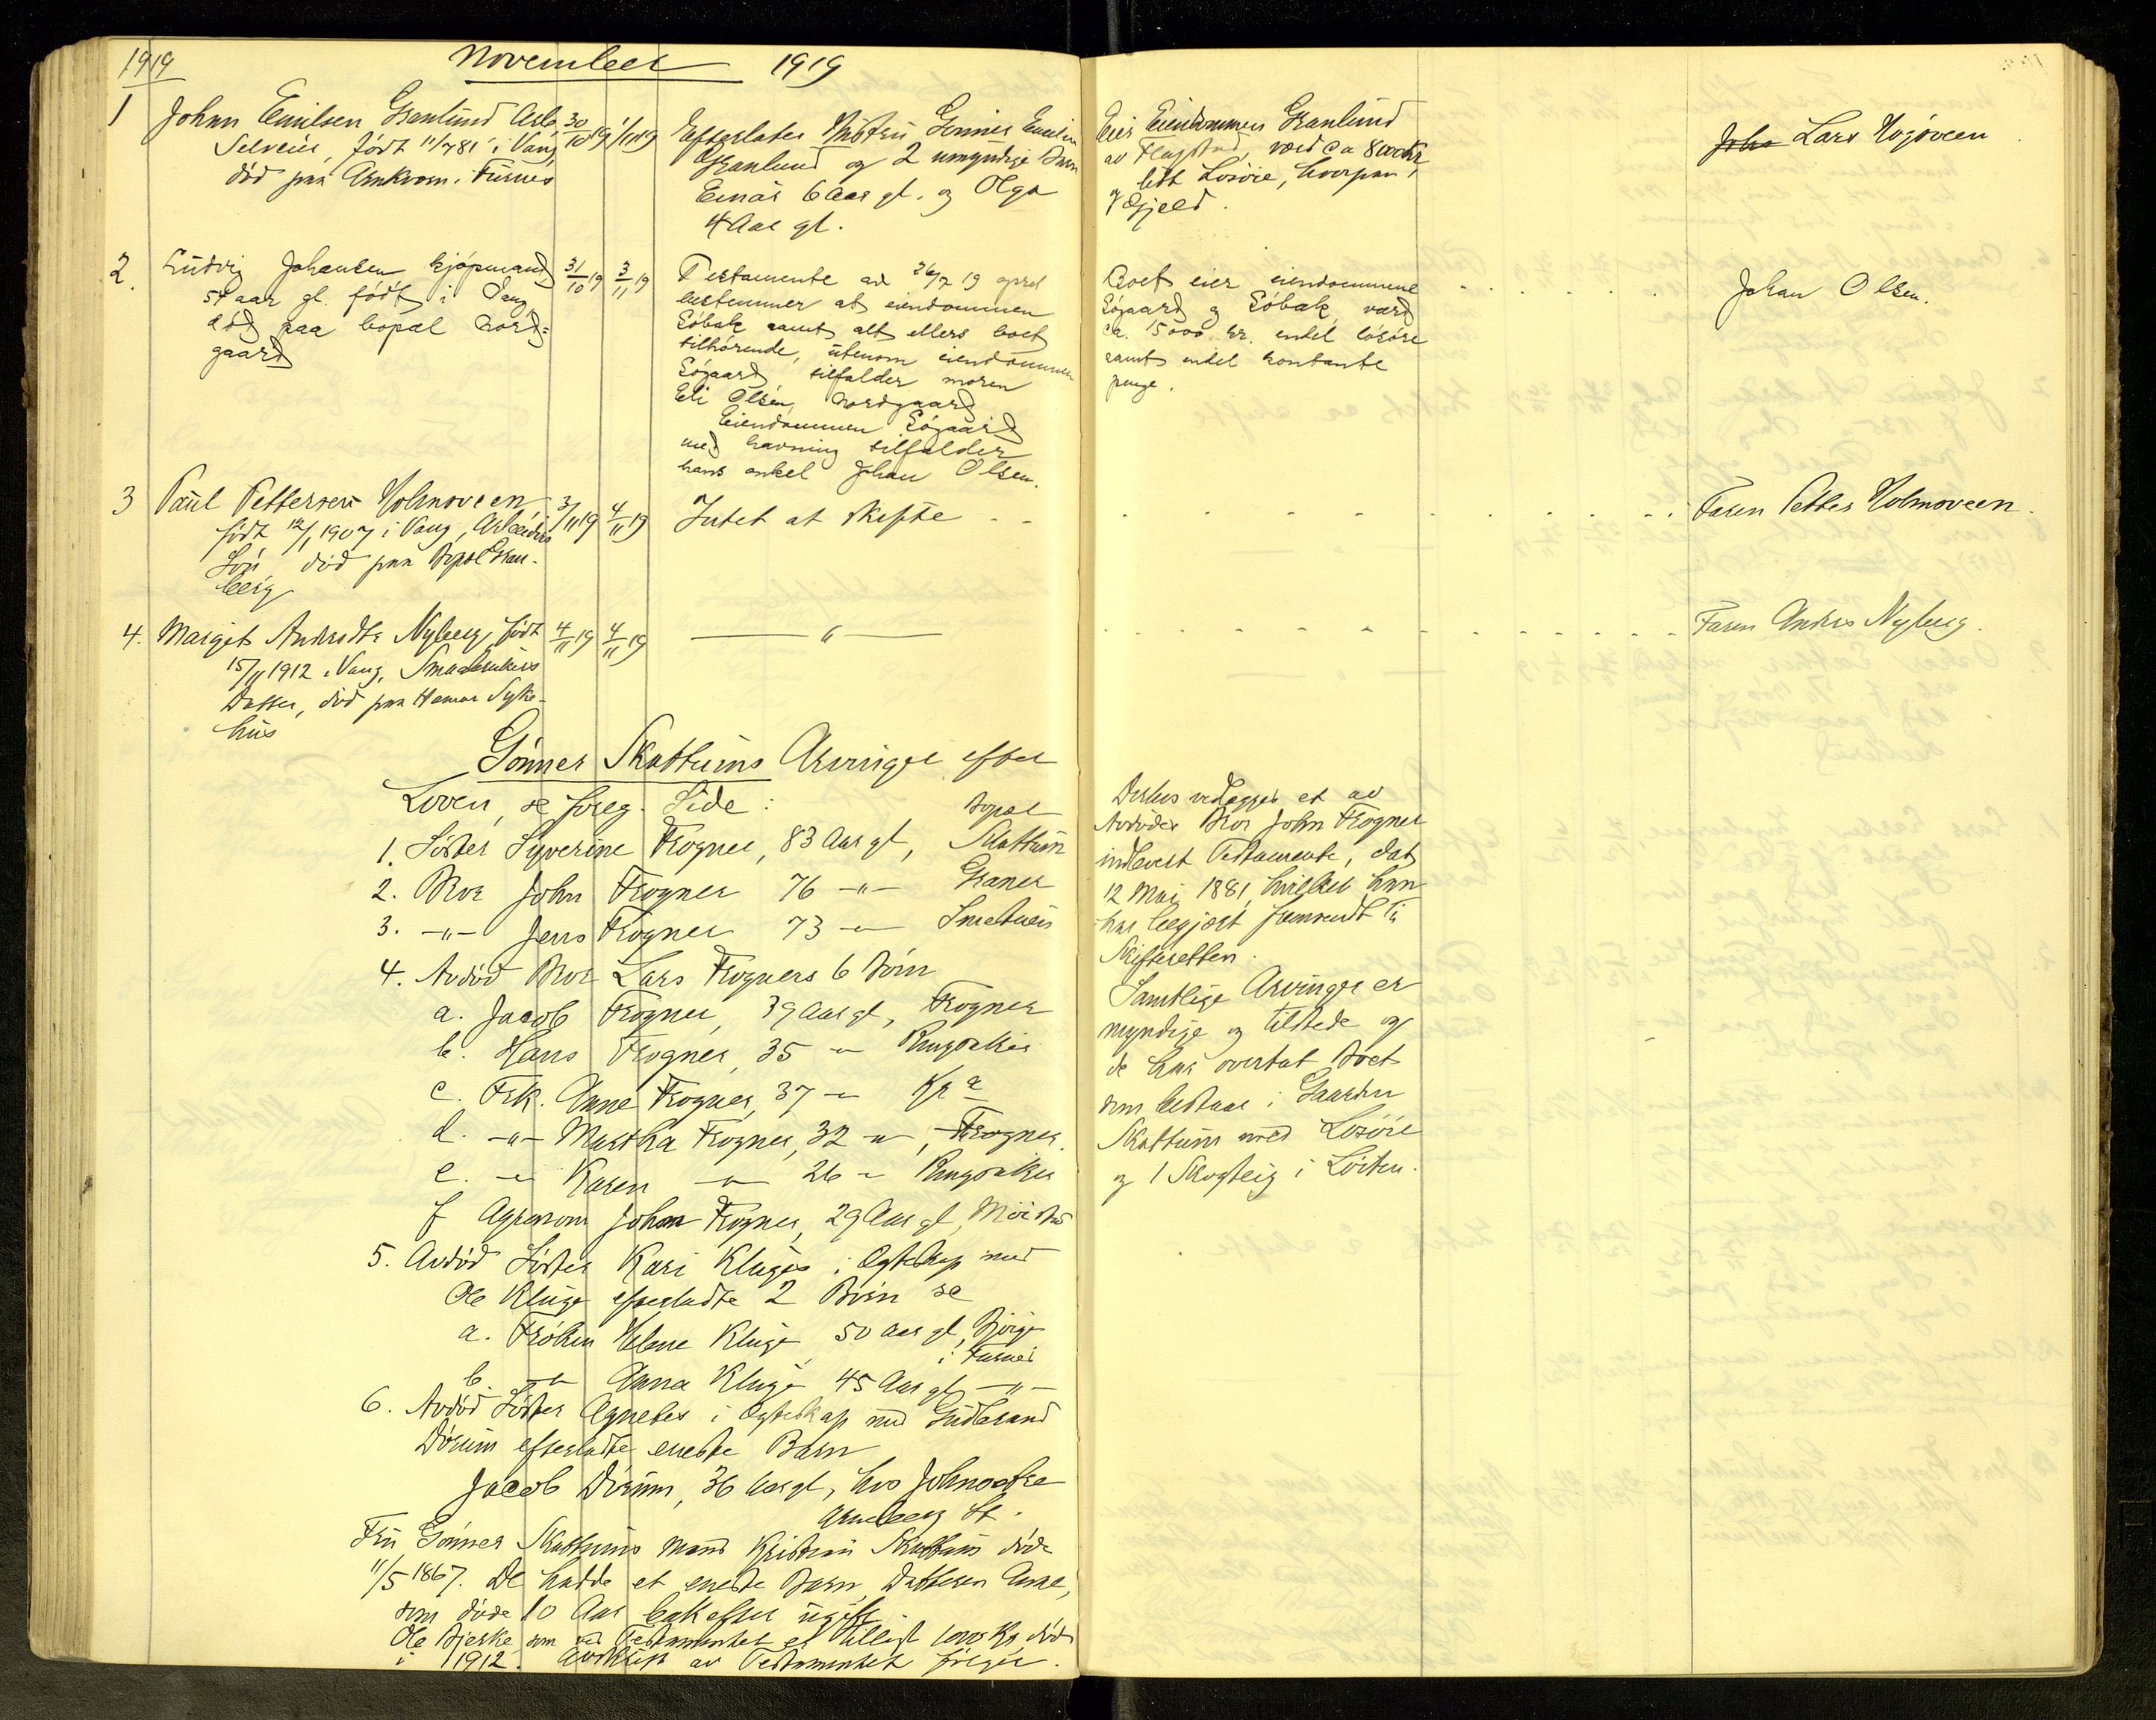 1919 November 1919
1 Johan Emilsen Granlund Arb. 30/10 19 1/11 19 Efterlater Hustru Gunner Emilie Eier Eiendommen Granlund Joha Lars Hojoveen
Selveier, født 11/7 81 i Vang Granlund og 2 umyndige Barn av Flagstad, værd Ca 8000 Kr
død paa Arnkvern i Furnes Einar 6 Aar gl. og Olga og lidt Løsøre, hvorpaa
4 Aar gl. Gjæld.
2. Ludvig Johansen kjøpmand 31/10 19 3/11 19 Testamente av 26/7 19 Boet eier eiendommene Johan Olsen.
54 aar gl. født i Vang bestemmer at eiendommen Søgaard og Søbak, værd
død paa bopæl Nord= Søbak samt alt ellers boet ca. 15000 kr. endel løsøre
gaard tilhørende, utenom eiendommen samt endel kontante
Søgaard tilfalder moren penge.
Eli Olsen, Nordgaard
Eiendommen Søgaard
med havning tilfalder
hans onkel Johan Olsen.
3 Paul Pettersen Holmoveen, 3/11 19 4/11 19 Intet at skifte Faren Petter Holmoveen.
født 12/1 1907 i Vang, Arbeiders
Søn, død paa Bopæl Gran-
berg
4. Margit Andersdtr Nyberg, født 4/11 19 4/11 19 — " — Faren Anders Nyberg.
15/11 1912 i Vang, Smaabrukers
Datter, død paa Hamar Syke-
hus
Gønner Skattums Arvinger efter
Loven, se foreg. Side: Bopæl
1. Søster Syverine Frogner, 83 Aar gl, Skattum
2. Bror John Frogner 76 -"- Graner
3. -"- Jens Frogner 73 -"- Smedhus
4. Avdød Bror Lars Frogners 6 Børn
a. Jacob Frogner, 39 Aar gl, Frogner
b. Hans Frogner, 35 -"- Ringsaker
c. Frk. Anne Frogner, 37 -"- Kra
d. -"- Martha Frogner, 32 -"-, Frogner
e. -"- Karen -"- 26 -"- Ringsaker
f Agronom Johan Frogner, 29 Aar gl,
5. Avdød Søster Kari Kluge i Ægteskap med
Ole Kluge efterladte 2 Børn se
a. Frøken Helene Kluge 50 Aar gl, Bjørge
i Furnes
b. -"- Anna Kluge 45 Aar gl -"-
6. Avdød Søster Agnethe i Ægteskap med Gudbrand
Dørum efterladte eneste Barn
Jacob Dørum, 36 Aar gl, hos Johnoette
Arneberg St.
Fru Gønner Skattums Mand Kristian Skattum døde
11/5 1867. De hadde et eneste Barn, Datteren Anne,
som døde 10 Aar bakefter ugift
Ole Bjerke som ved Testamentet et tillagt 1000 Kr, døde
i 1912. Avskrift av Testamentet følger.
Derhos vedlægges et av
Avdødes Bror John Frogner
indlevert Testamente, dat
12 Mai 1881, hvilket han
har begjært fremsendt til
Skifteretten.
Samtlige Arvinger er
myndige og tilstede og
de har overtat Boet
som bestaar i Gaarden
Skattum med Løsøre
og 1 Skogteig i Løiten.